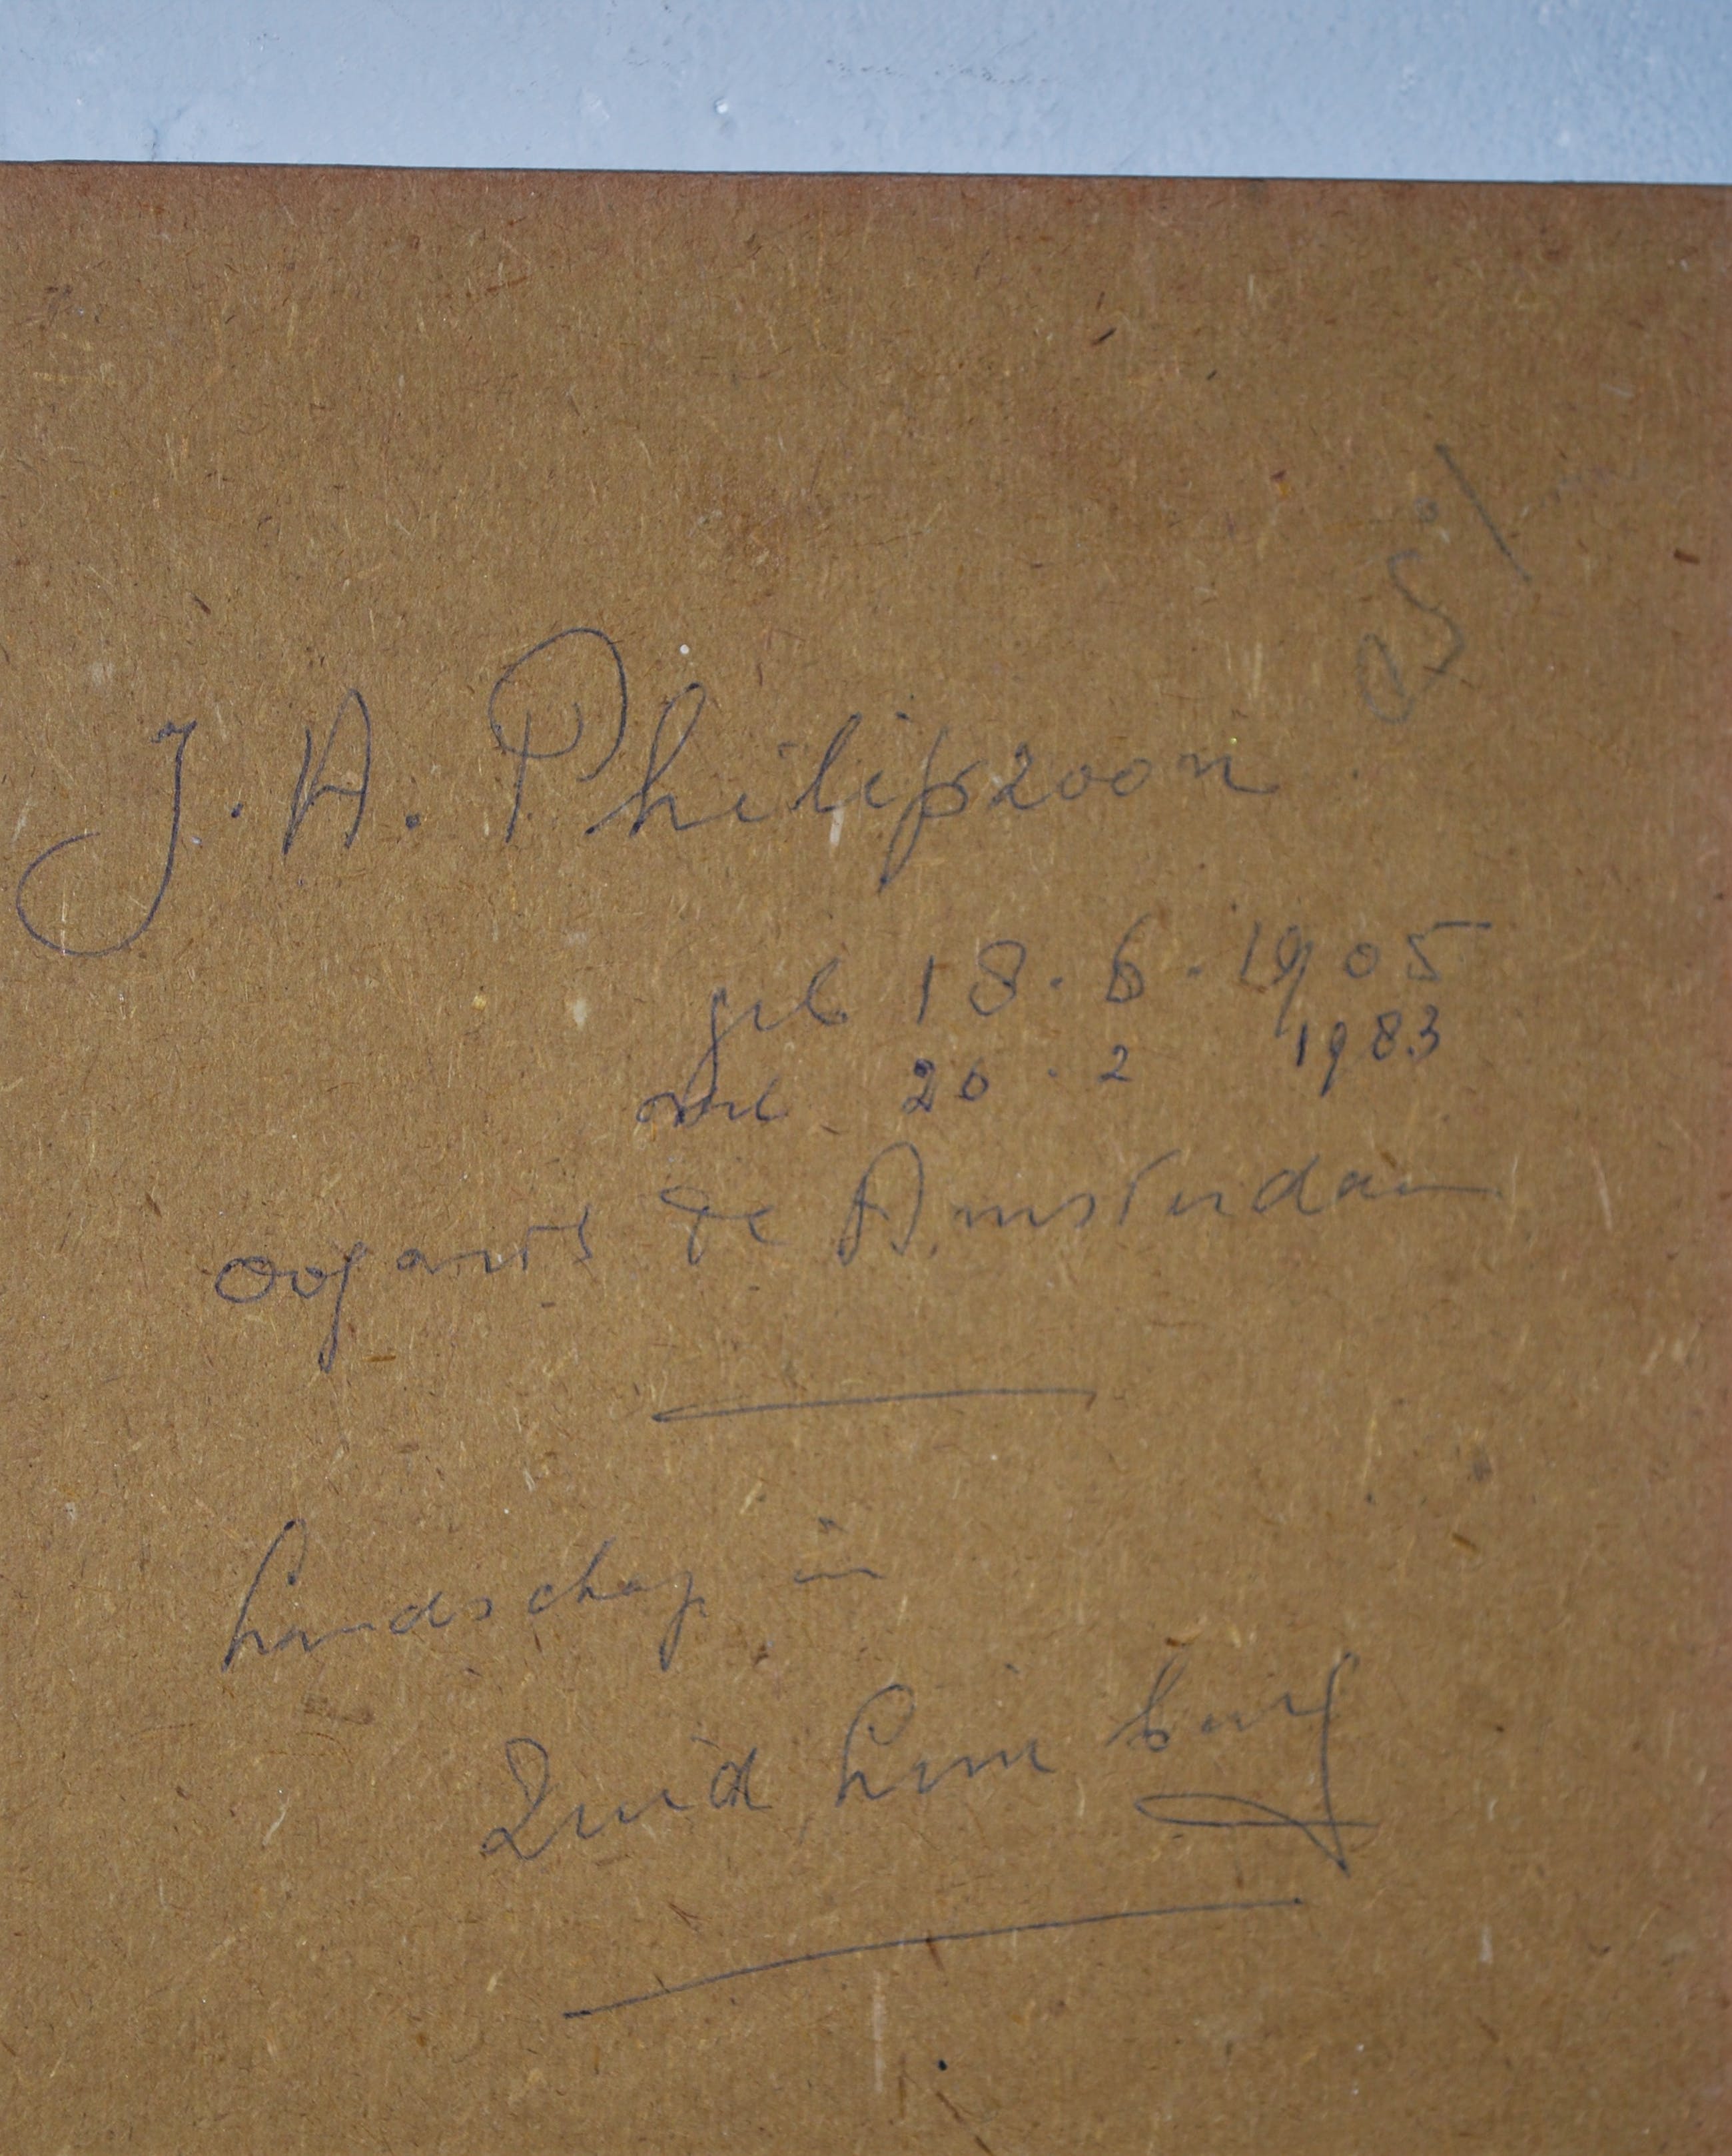 J. A. Philipszoon
geb 18.6.1905
ovl 20.2 1983
oogarts te Amsterdam
Landschap in
Zuid Limburg